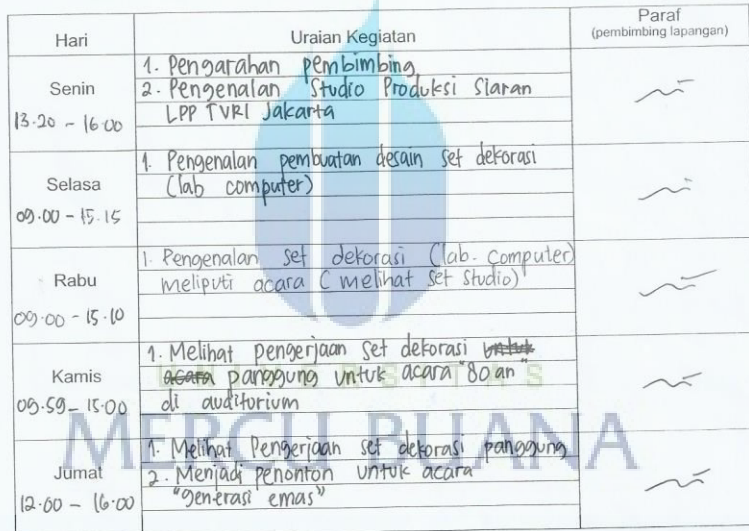 Hari Uraian Kegiatan Paraf
(pembimbing lapangan)
Senin
13.20 - 16.00
1. Pengarahan pembimbing
2. Pengenalan Studio Produksi Siaran
LPP TVRI Jakarta
Selasa
09.00 - 15.15
1. Pengenalan pembuatan desain set dekorasi
(lab computer)
Rabu
09.00 - 15.10
1. Pengenalan set dekorasi (lab. computer)
meliputi acara (melihat set studio)
Kamis
09.59 - 15.00
1. Melihat pengerjaan set dekorasi untuk
acara panggung untuk acara "80 an"
di auditorium
UNIVERSITAS
MERCU BUANA
Jumat
12.00 - 16.00
1. Melihat Pengerjaan set dekorasi panggung
2. Menjadi penonton untuk acara
"generasi emas"